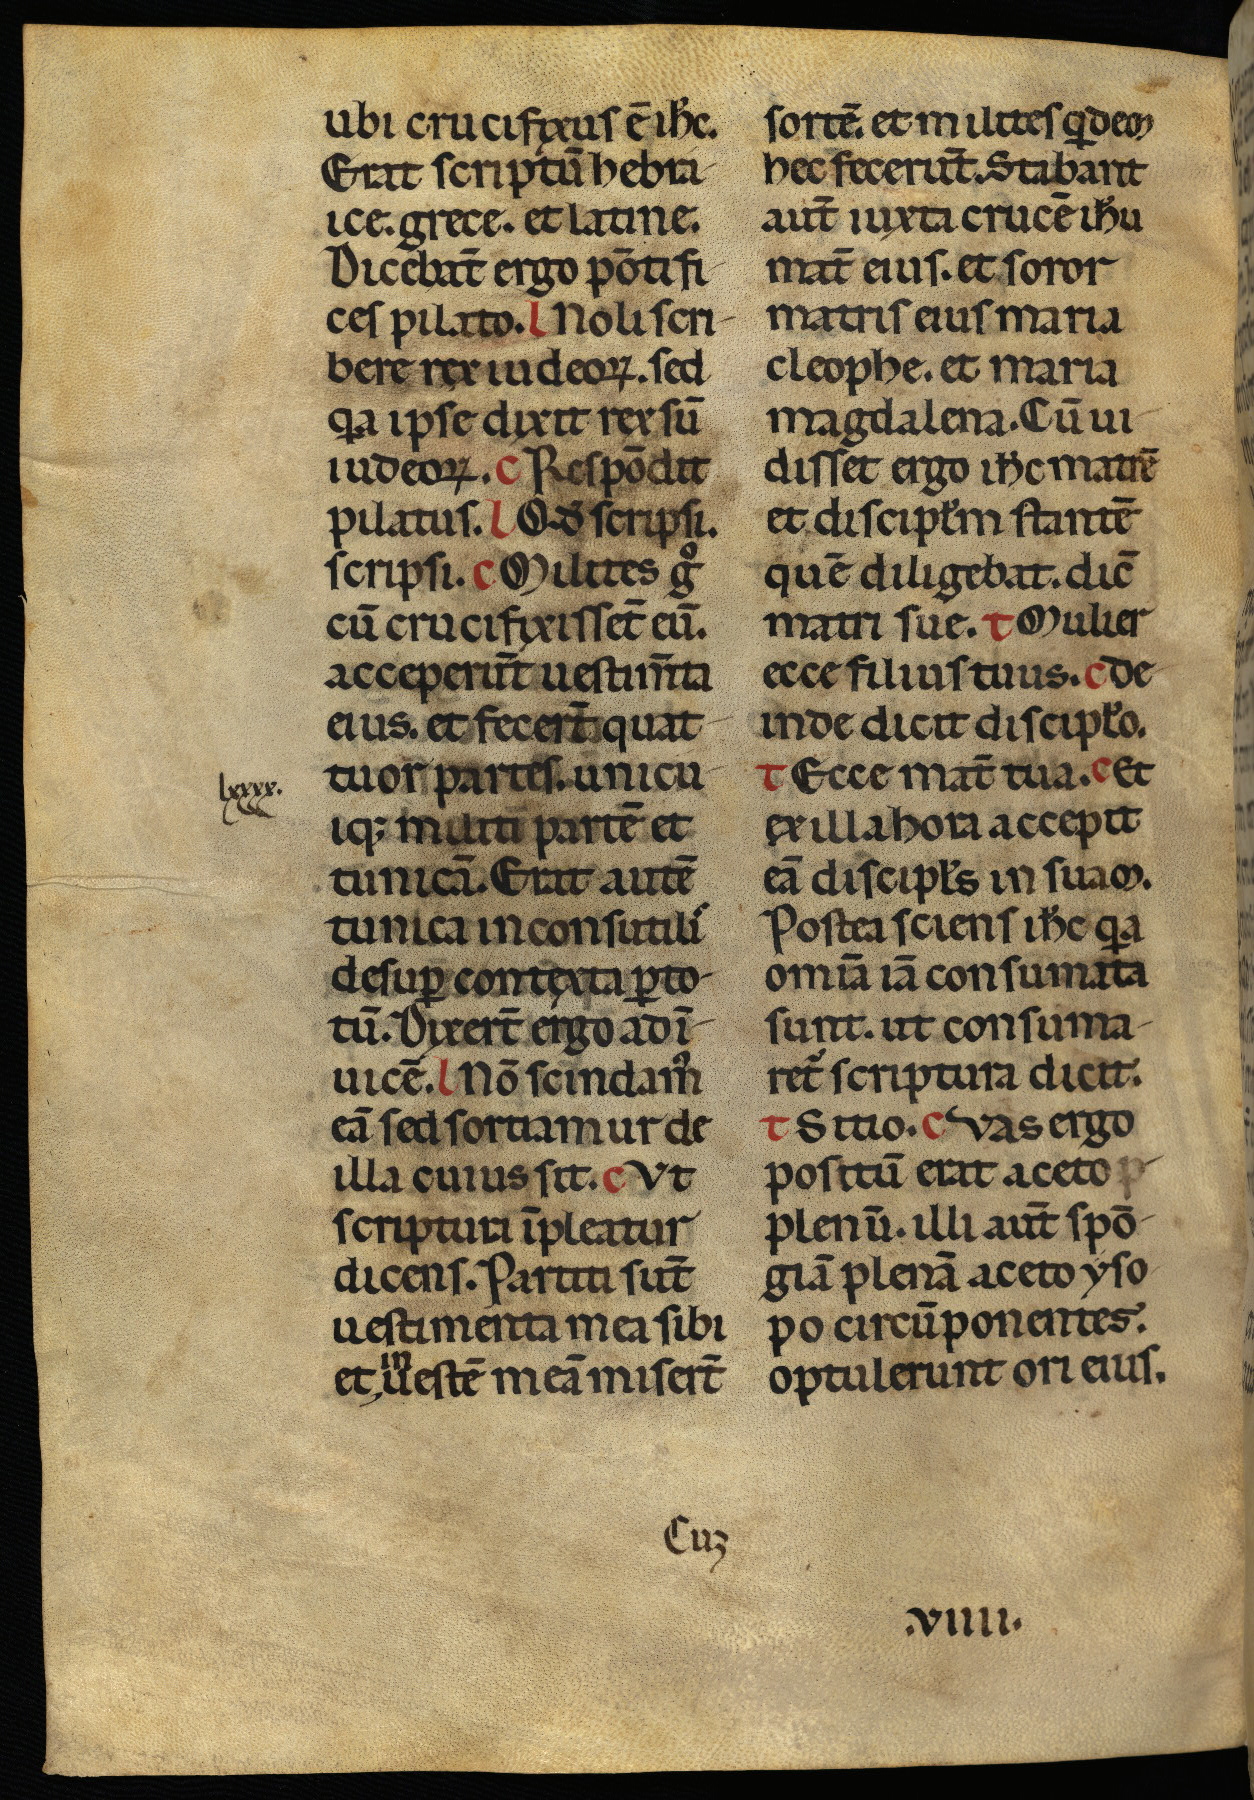 ubi crucifixus ē ih̄c.
Erat scriptū hebra-
ice. grece. et latine.
Dicebāt ergo pōtifi-
ces pilato. l Noli scri-
bere rex iudeoꝝ. sed
qa ipse dixit rex sū
iudeoꝝ. c Respōdit
pilatus. l Qd̄ scripsi.
scripsi. c Milites gͦ
cū crucifixisset̄ eū.
acceperūt uestim̄ta
eius. et fecert̄ quat-
tuor partes. unicu-
iqꝫ militi partē et
tunicā. Erat autē
tunica inconsutilis
desuꝑ contexta ꝑ to-
tū. Dixert̄ ergo ad ī-
uicē. l Nō scindam᷒
eā sed sortiamur de
illa cuius sit. c Vt
scriptura īpleatur
dicens. Partiti sūt
uestimenta mea sibi
et in uestē meā misert̄
lxxxx.
sortē. et milites qidem
hec fecerūt. Stabant
aut̄ iuxta crucē ih̄u
mat̄ eius. et soror
matris eius maria
cleophe. et maria
magdalena. Cū ui-
disset̄ ergo ih̄c matrē
et discipłm stantē
quē diligebat. dic̄
matri sue. t Mulier
ecce filius tuus. c de-
inde dicit discipło.
t Ecce mat̄ tua. c Et
ex illa hora accepit
eā discipłs in suam.
Postea sciens ih̄c qa
om̄ia iā consumata
sunt. ut consuma-
ret᷑ scriptura dicit.
t Sitio. c Vas ergo
positū erat aceto p-
plenū. illi aut̄ spō-
giā plenā aceto yso-
po circūponentes.
optulerunt ori eius.
Cuꝫ
.viiii.